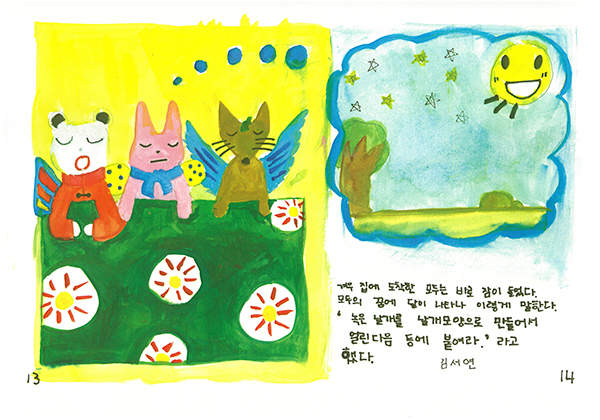 겨우 집에 도착한 모두는 바로 잠이 들었다.
모두의 꿈에 달이 나타나 이렇게 말한다.
' 녹은 날개를 날개모양으로 만들어서
얼린다음 등에 붙여라.' 라고
했다.
김서연
13
14